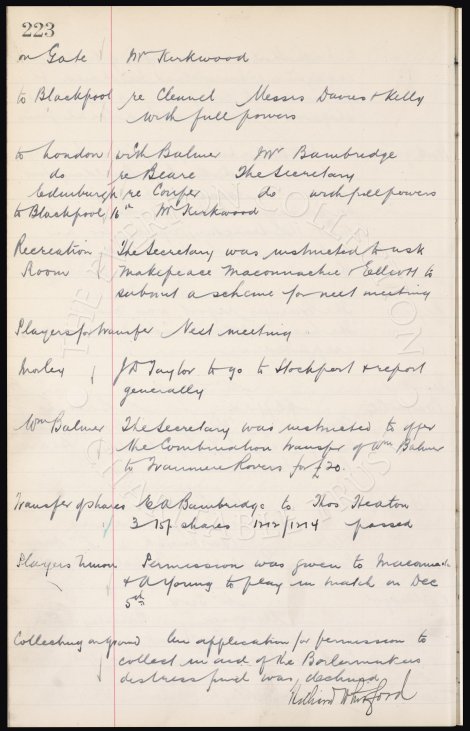 223
on Gate Mr Kirkwood
to Blackpool re Clennel Messrs Davies & Kelly
with full powers
to London with Balmer Mr Bainbridge
do re Beare The Secretary
Edinburgh re Couper do with full powers
to Blackpool 16th Mr Kirkwood
Recreation The Secretary was instructed to ask
Room Makepeace Maconnachie & Elliott to
submit a scheme for next meeting
Players for transfer Next meeting
Morley J D Taylor to go to Stockport & report
generally
Wm Balmer The Secretary was instructed to offer
the Combination transfer of Wm Balmer
to Tranmere Rovers for £20.
Transfer of shares E A Bainbridge to Thos Heaton
3 15/- shares 1212/1214 passed
Players Union Permission was given to Maconnach
& A Young to play in match on Dec
5th
Collecting on ground An application for permission to
collect in aid of the Boilermakers
distress fund was declined
THE EVERTON COLLECTION
CHARITABLE TRUST